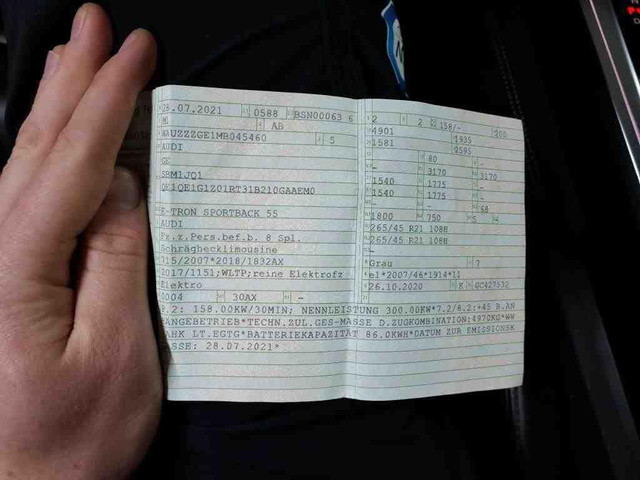 .07.2021 0588 BSN00063 6
M1 AB
WAUZZZGE1MB045460 5
AUDI
GE
SBM1JQ1
QE1QE1G1Z01RT31B210GAAEM0
E-TRON SPORTBACK 55
AUDI
Fz.z.Pers.bef.b. 8 Spl.
Schräghecklimousine
715/2007*2018/1832AX
2017/1151;WLTP;reine Elektrofz
Elektro
0004 30AX -
2 2 158/- 200
4901 1935
1581 2595
80 -
- 3170 3170
1540 1775 -
1540 1775 -
- 68
1800 750 5 4
265/45 R21 108H
265/45 R21 108H
-
Grau 7
e1*2007/46*1914*11
26.10.2020 K GC427532
P.2: 158.00KW/30MIN; NENNLEISTUNG 300.00KW*7.2/8.2:+45 B.AN
ÄNGEBETRIEB*TECHN.ZUL.GES-MASSE D.ZUGKOMBINATION:4970KG*WW
AHK LT.EGTG*BATTERIEKAPAZITÄT 86.0KWH*DATUM ZUR EMISSIONSK
ASSE: 28.07.2021*